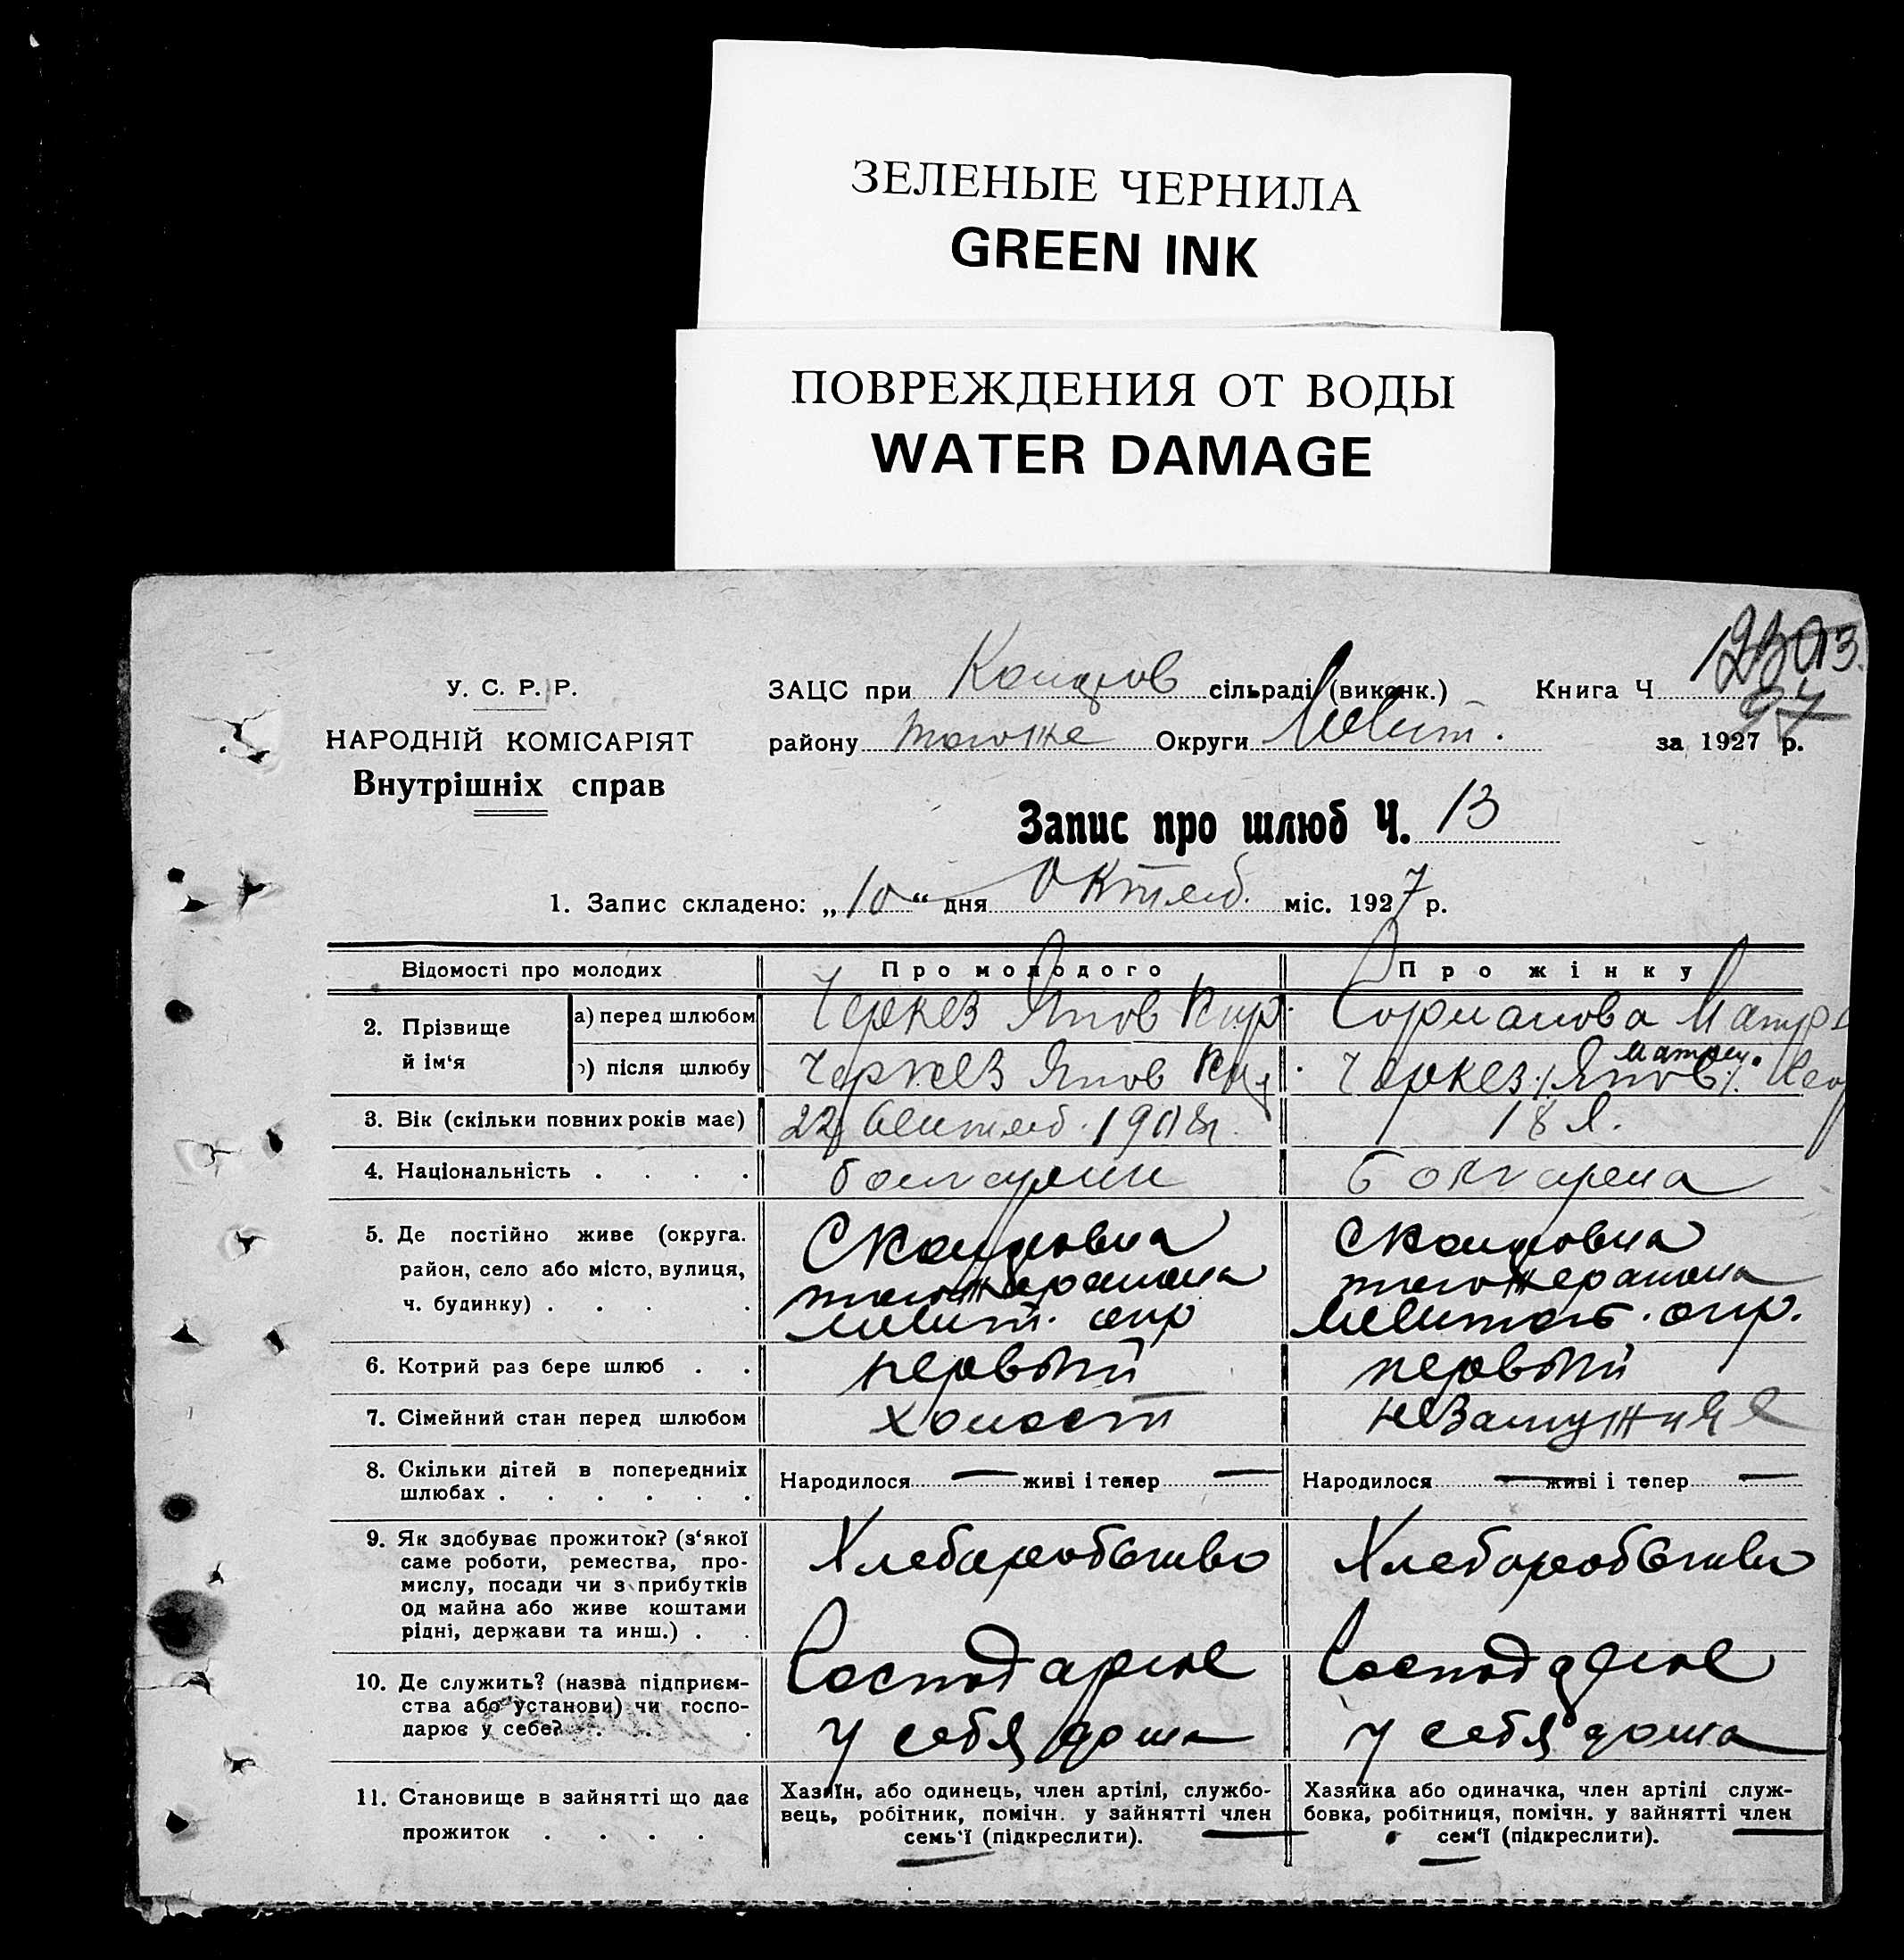 ЗЕЛЕНЫЕ ЧЕРНИЛА
GREEN INK
ПОВРЕЖДЕНИЯ ОТ ВОДЫ
WATER DAMAGE
У. С. Р. Р.
НАРОДНІЙ КОМІСАРІЯТ
Внутрішніх справ
ЗАЦС при сільраді (виконк.) Книга Ч
району тогоже Округи Мелит. за 1927 р.
Запис про шлюб Ч. 13
1. Запис складено: „10“ дня Октяб. міс. 1927 р.
Відомості про молодих Про молодого Про жінку
2. Прізвище й ім‘я
а) перед шлюбом Черкез Яков Кир.
після шлюбу Черкез Яков
3. Вік (скільки повних років має) 22 18 л.
4. Національність . . . . болгарин болгарка
5. Де постійно живе (округа.
район, село або місто, вулиця,
ч. будинку) . . . .
тогожерайона тогожерайона
Мелит. окр Мелитоп. окр.
6. Котрий раз бере шлюб . . первый первый
7. Сімейний стан перед шлюбом холост незамужняя
8. Скільки дітей в попередниіх
шлюбах . . . . . .
Народилося — живі і тепер — Народилося — живі і тепер —
9. Як здобуває прожиток? (з‘якої
саме роботи, ремества, про-
мислу, посади чи з прибутків
од майна або живе коштами
рідні, держави та инш.) . .
Хлебаробство Хлебаробство
10. Де служить? (назва підприєм-
ства або установи) чи госпо-
дарює у себе? . . .
Господарює Господарює
у себя дома у себя дома
11. Становище в зайнятті що дає
прожиток . . . .
Хазяїн, або одинець, член артілі, службо-
вець, робітник, помічн. у зайнятті член
семь‘ї (підкреслити).
Хазяйка або одиначка, член артілі служ-
бовка, робітниця, помічн. у зайнятті член
сем‘ї (підкреслити).